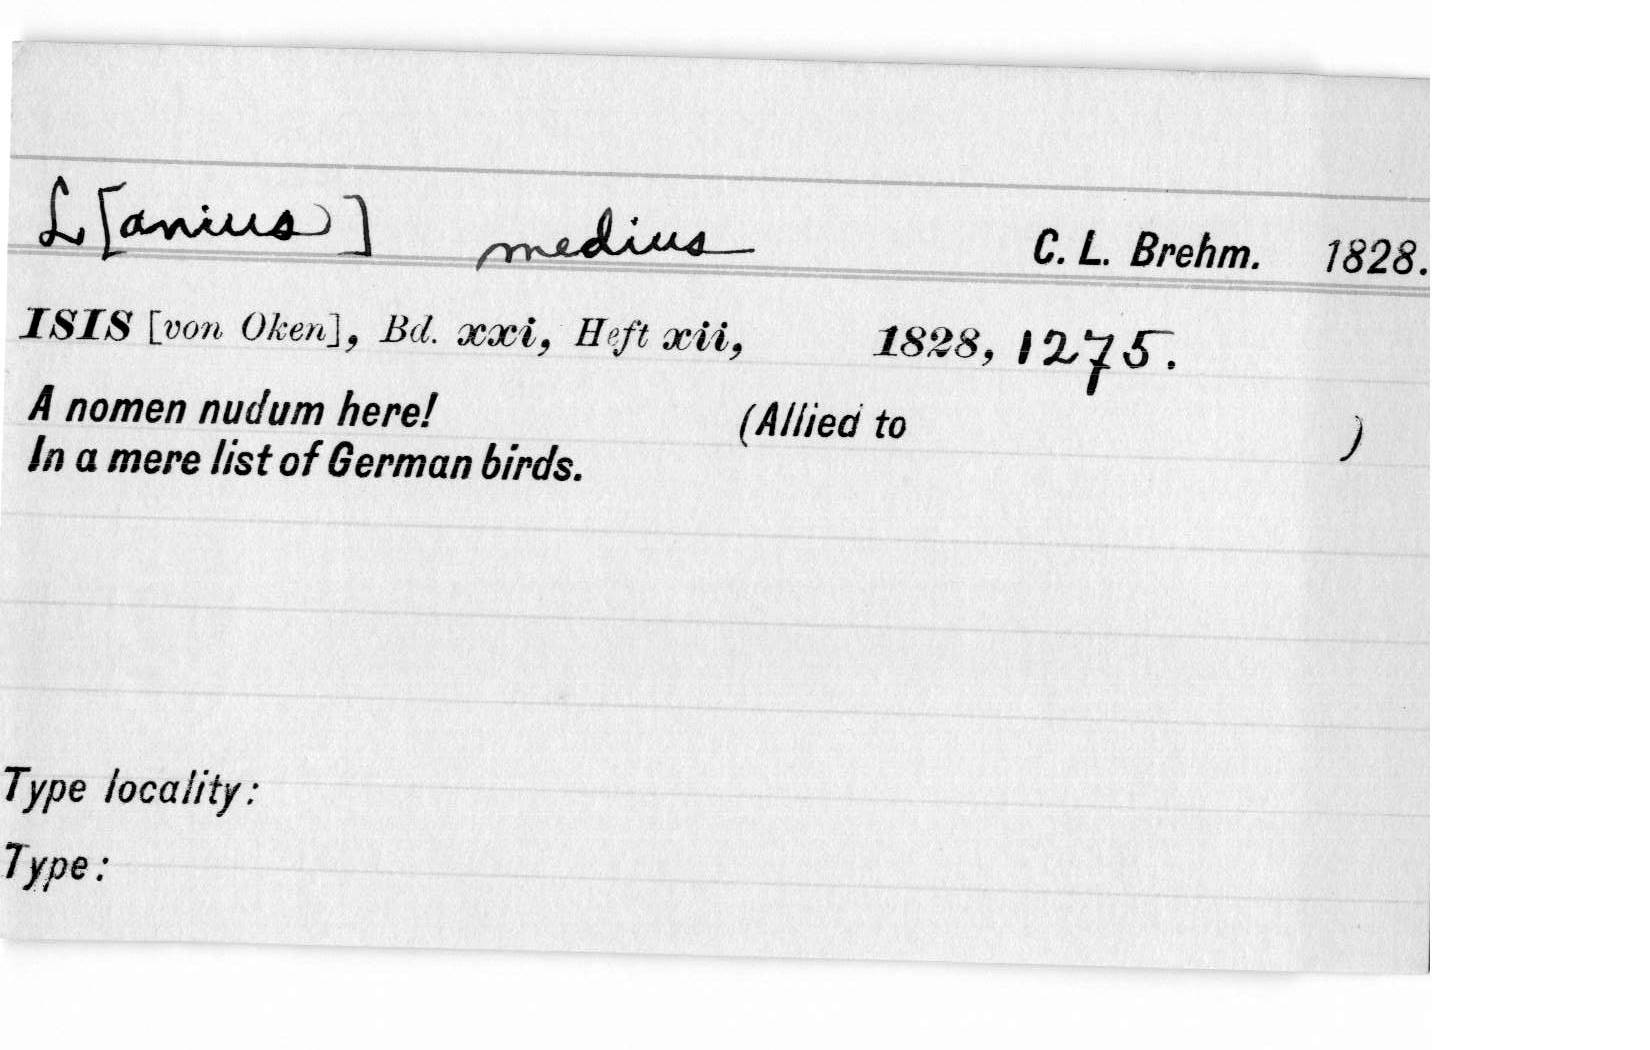 L[anius] medius C. L. Brehm. 1828.
ISIS [von Oken], Bd. xxi, Heft xii, 1828, 1275.
A nomen nudum here! (Allied to )
In a mere list of German birds.
Type locality:
Type: